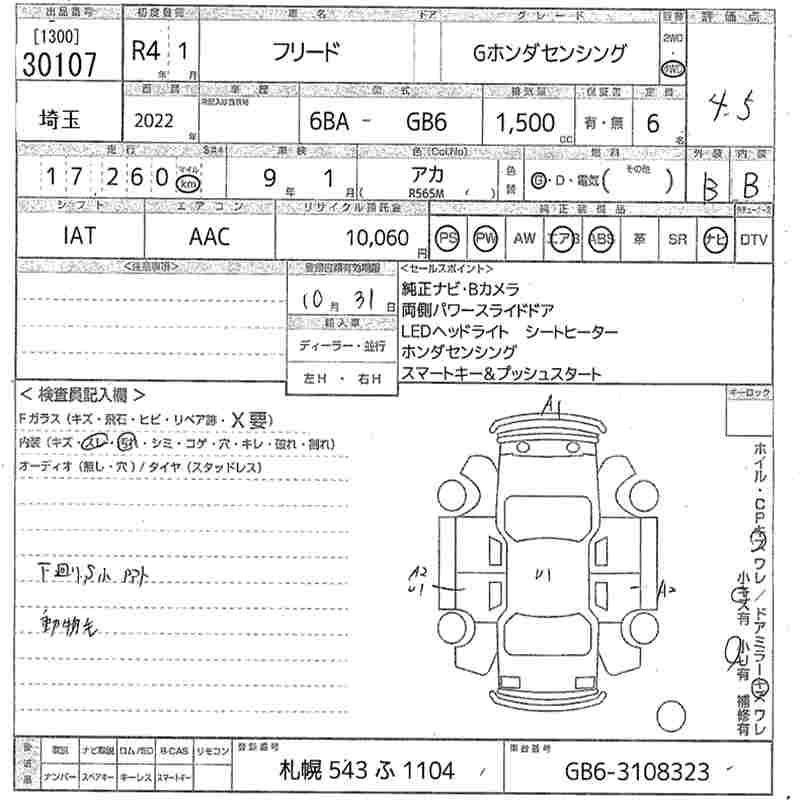 出品番号 初度登録 車名 ドア グレード 駆動 評価点
[1300]
30107 R4 1 フリード Gホンダセンシング 2WD ・ 4WD
年 月
4.5
埼玉
2022 年
車歴 型式 排気量 保証書 定員
6BA - GB6 1,500 cc 有・無 6 名
走行 車検 色(Col.No) 色替 燃料 外装 内装
17 260 マイル km 9 年 1 月 アカ ( R565M ) G・D・電気( その他 ) B B
シフト エアコン リサイクル預託金 純正装備品
IAT AAC 10,060 円 PS PW AW エアB ABS 革 SR ナビ DTV
<注意事項> <セールスポイント>
10月 31日
純正ナビ・Bカメラ
両側パワースライドドア
輸入車
LEDヘッドライト シートヒーター
ディーラー・並行
ホンダセンシング
左H ・ 右H
スマートキー&プッシュスタート
<検査員記入欄> キーロック
Fガラス(キズ・飛石・ヒビ・リペア跡・X要)
内装(キズ・スレ・汚れ・シミ・コゲ・穴・キレ・破れ・割れ)
オーディオ(無し・穴)/タイヤ(スタッドレス)
A1
下廻り,S小
A2
U1
U1
A2
動物毛
ホイル・CPキズワレ/ドアミラーキズワレ
小キズ有 小U有 補修有
後送品 取説 ナビ取説 ロム/SD B-CAS リモコン 登録番号 車台番号
ナンバー スペアキー キーレス スマートキー 札幌 543 ふ 1104 GB6-3108323